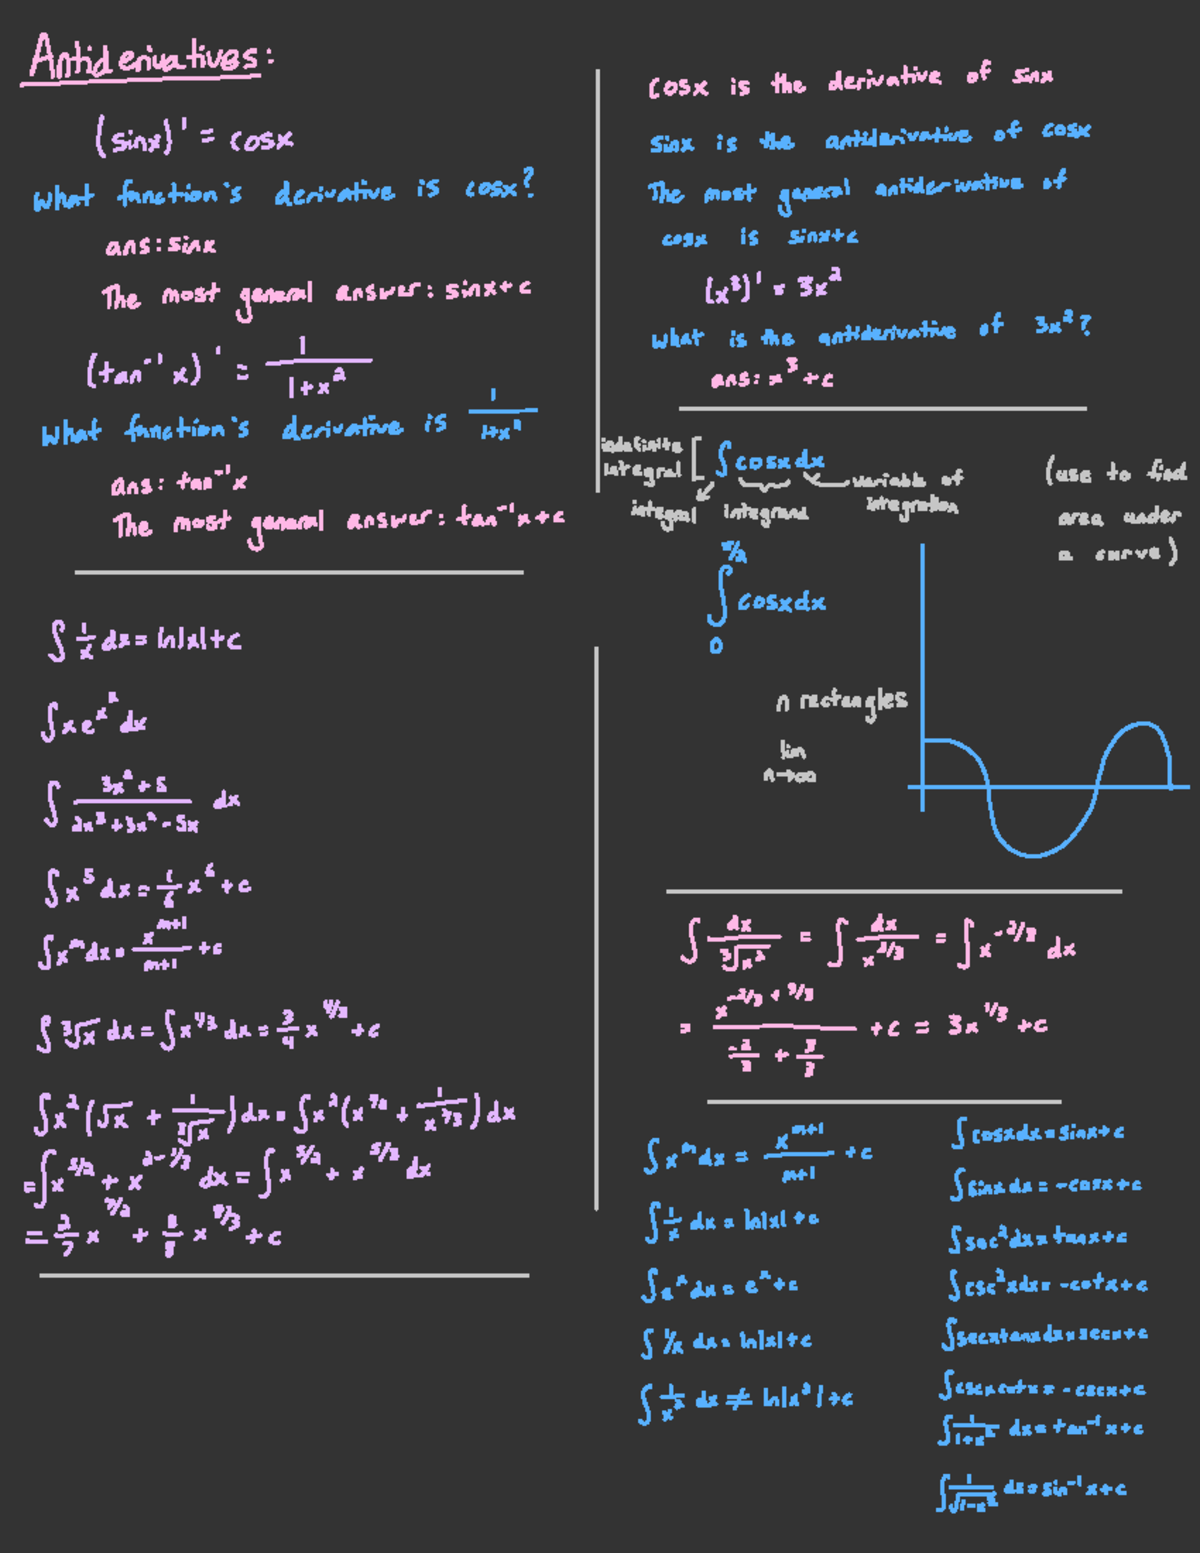 Antiderivatives:
(sinx)' = cosx
What function's derivative is cosx?
ans: sinx
The most general answer: sinx+c
(tan⁻¹x)' = 1/(1+x²)
What function's derivative is 1/(1+x²)
ans: tan⁻¹x
The most general answer: tan⁻¹x+c
∫ 1/x dx = ln|x|+c
∫xe^(x²) dx
∫ (3x²+5)/(2x³+3x²-5x) dx
∫x⁵dx = 1/6 x⁶+c
∫x^m dx = x^(m+1)/(m+1) +c
∫ ∛x dx = ∫x^(1/3) dx = 3/4 x^(4/3) +c
∫x²(√x + 1/∛x)dx = ∫x²(x^(1/2) + 1/x^(1/3))dx
=∫x^(5/2) + x^(2-1/3) dx = ∫x^(5/2) + x^(5/3) dx
= 2/7 x^(7/2) + 3/8 x^(8/3) +c
cosx is the derivative of sinx
sinx is the antiderivative of cosx
The most general antiderivative of
cosx is sinx+c
(x³)' = 3x²
What is the antiderivative of 3x²?
ans: x³+c
indefinite integral [ ∫cosxdx
integral
integrand
variable of integration
(use to find
area under
a curve)
∫₀^(π/2) cosxdx
n rectangles
lim
n→∞
∫ dx/∛x² = ∫ dx/x^(2/3) = ∫x^(-2/3) dx
= x^(-2/3 + 3/3)/(-2/3 + 3/3) +c = 3x^(1/3) +c
∫x^m dx = x^(m+1)/(m+1) +c
∫ 1/x dx = ln|x|+c
∫e^x dx = e^x+c
∫ 1/x dx = ln|x|+c
∫ 1/x² dx ≠ ln|x²|+c
∫cosxdx = sinx+c
∫sinxdx = -cosx+c
∫sec²dx = tanx+c
∫csc²xdx = -cotx+c
∫secxtanxdx = secx+c
∫cscxcotx = -cscx+c
∫ 1/(1+x²) dx = tan⁻¹x+c
∫ 1/√(1-x²) dx = sin⁻¹x+c